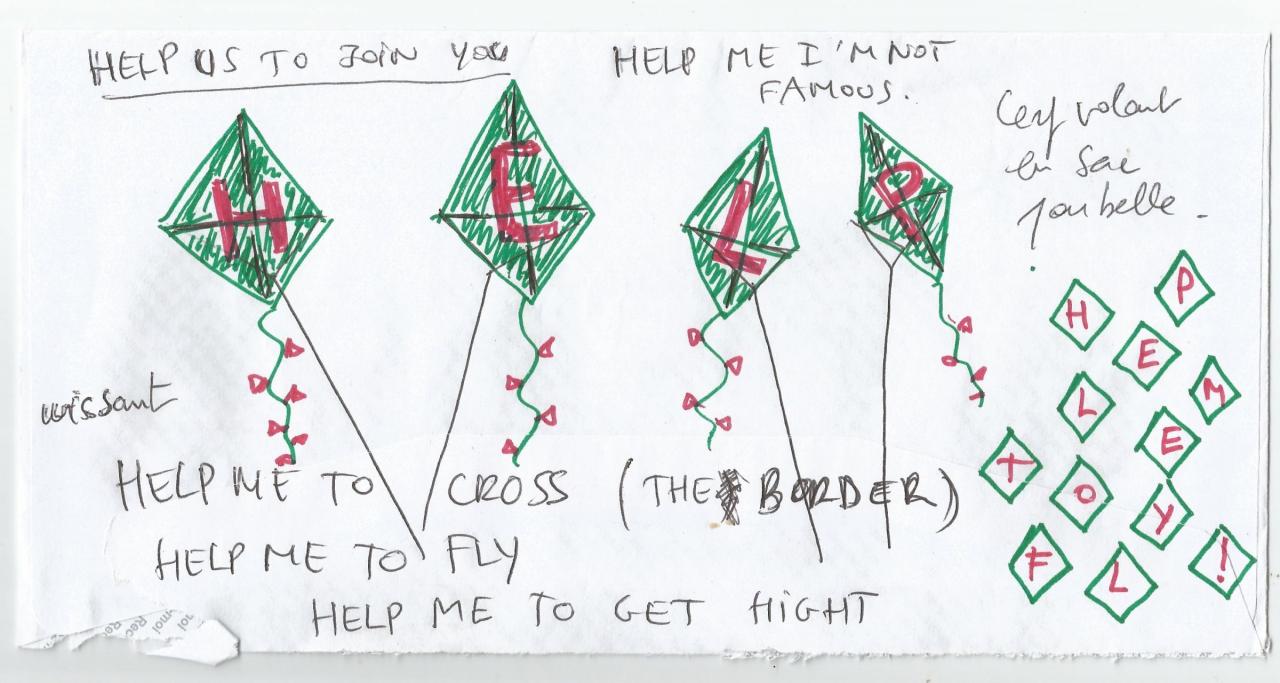 HELP US TO JOIN YOU
HELP ME I'M NOT
FAMOUS.
Cerf volant
en sac
poubelle.
H E L P
wissant
HELP ME TO CROSS (THE BORDER)
HELP ME TO FLY
HELP ME TO GET HIGHT
H P
E
L M
E
T O
Y
F L !